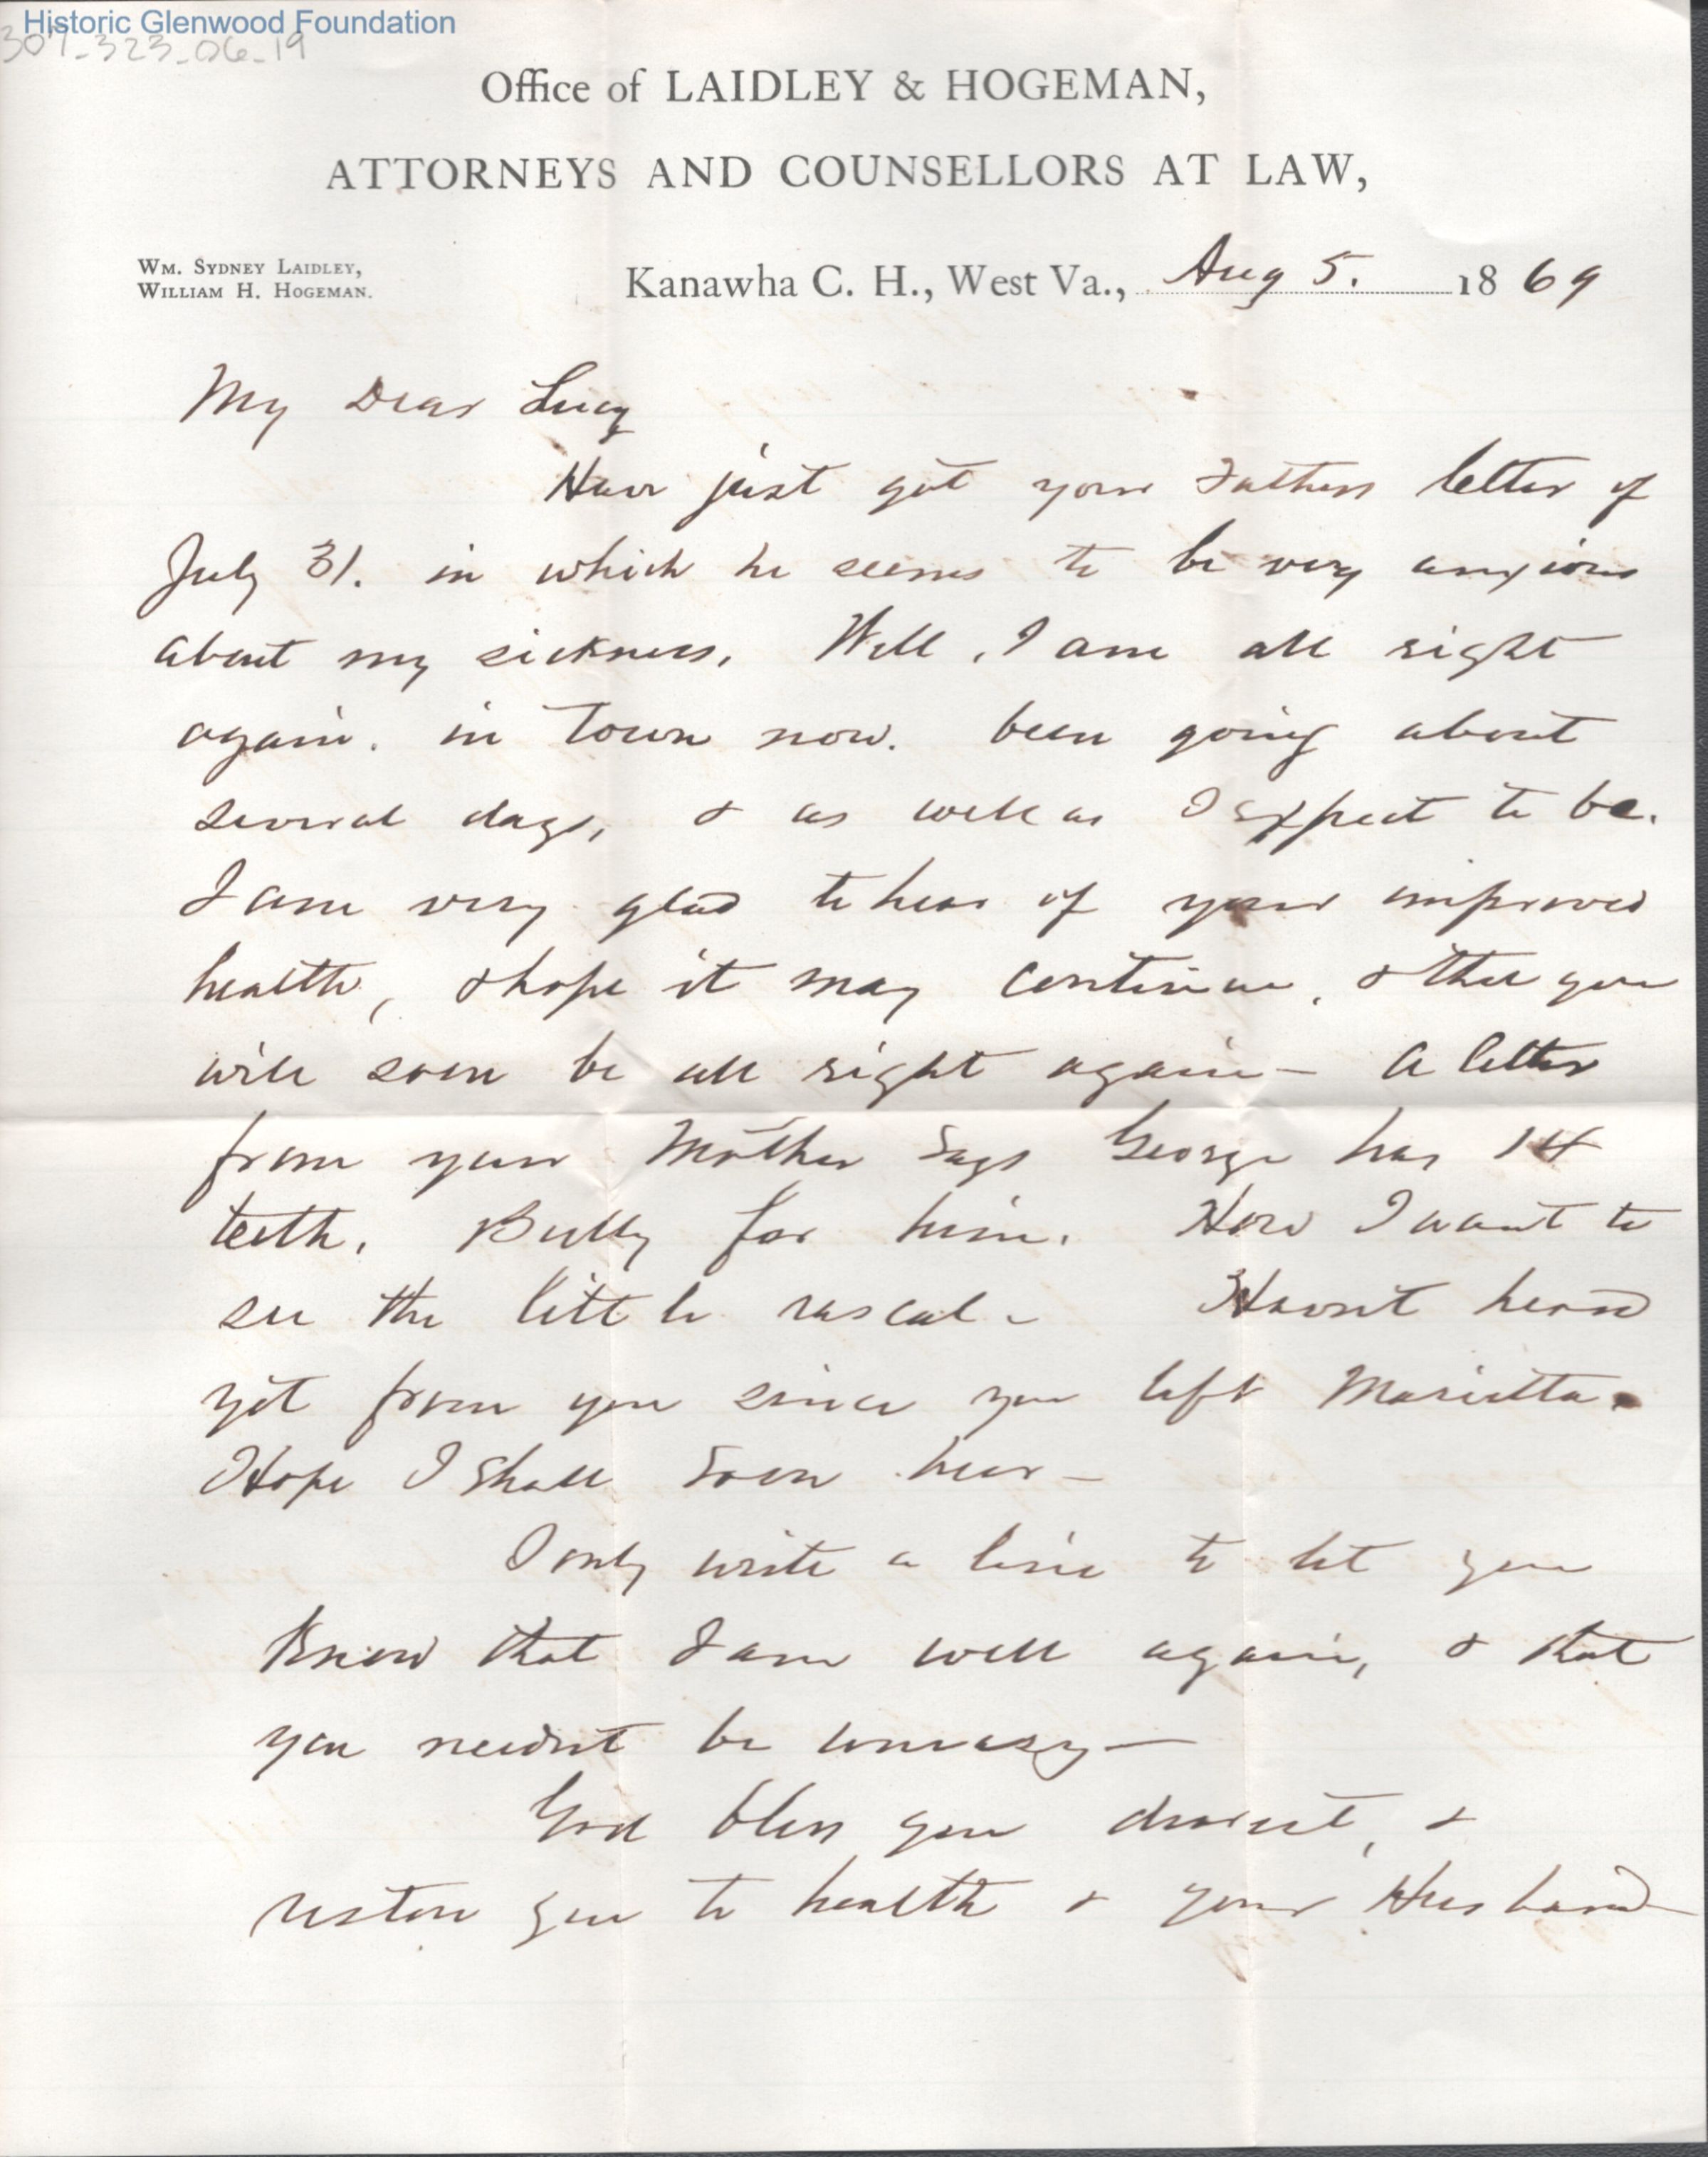 Historic Glenwood Foundation
307-323-06-19
Office of LAIDLEY & HOGEMAN,
ATTORNEYS AND COUNSELLORS AT LAW,
WM. SYDNEY LAIDLEY,
WILLIAM H. HOGEMAN.
Kanawha C. H., West Va., Aug 5. 1869
My Dear Lucy
Have just got your Fathers letter of
July 31. in which he seems to be very anxious
about my sickness. Well, I am all right
again. in Town now. been going about
several days, & as well as I expect to be.
I am very glad to hear of your improved
health, & hope it may continue, & that you
will soon be all right again - A letter
from your Mother says George has 14
teeth. Bully for him. How I want to
see the little rascal - Havn't heard
yet from you since you left Marietta.
Hope I shall soon hear -
I only write a line to let you
Know that I am well again, & that
you needn't be uneasy -
God bless you dearest, &
restore you to health & your Husband